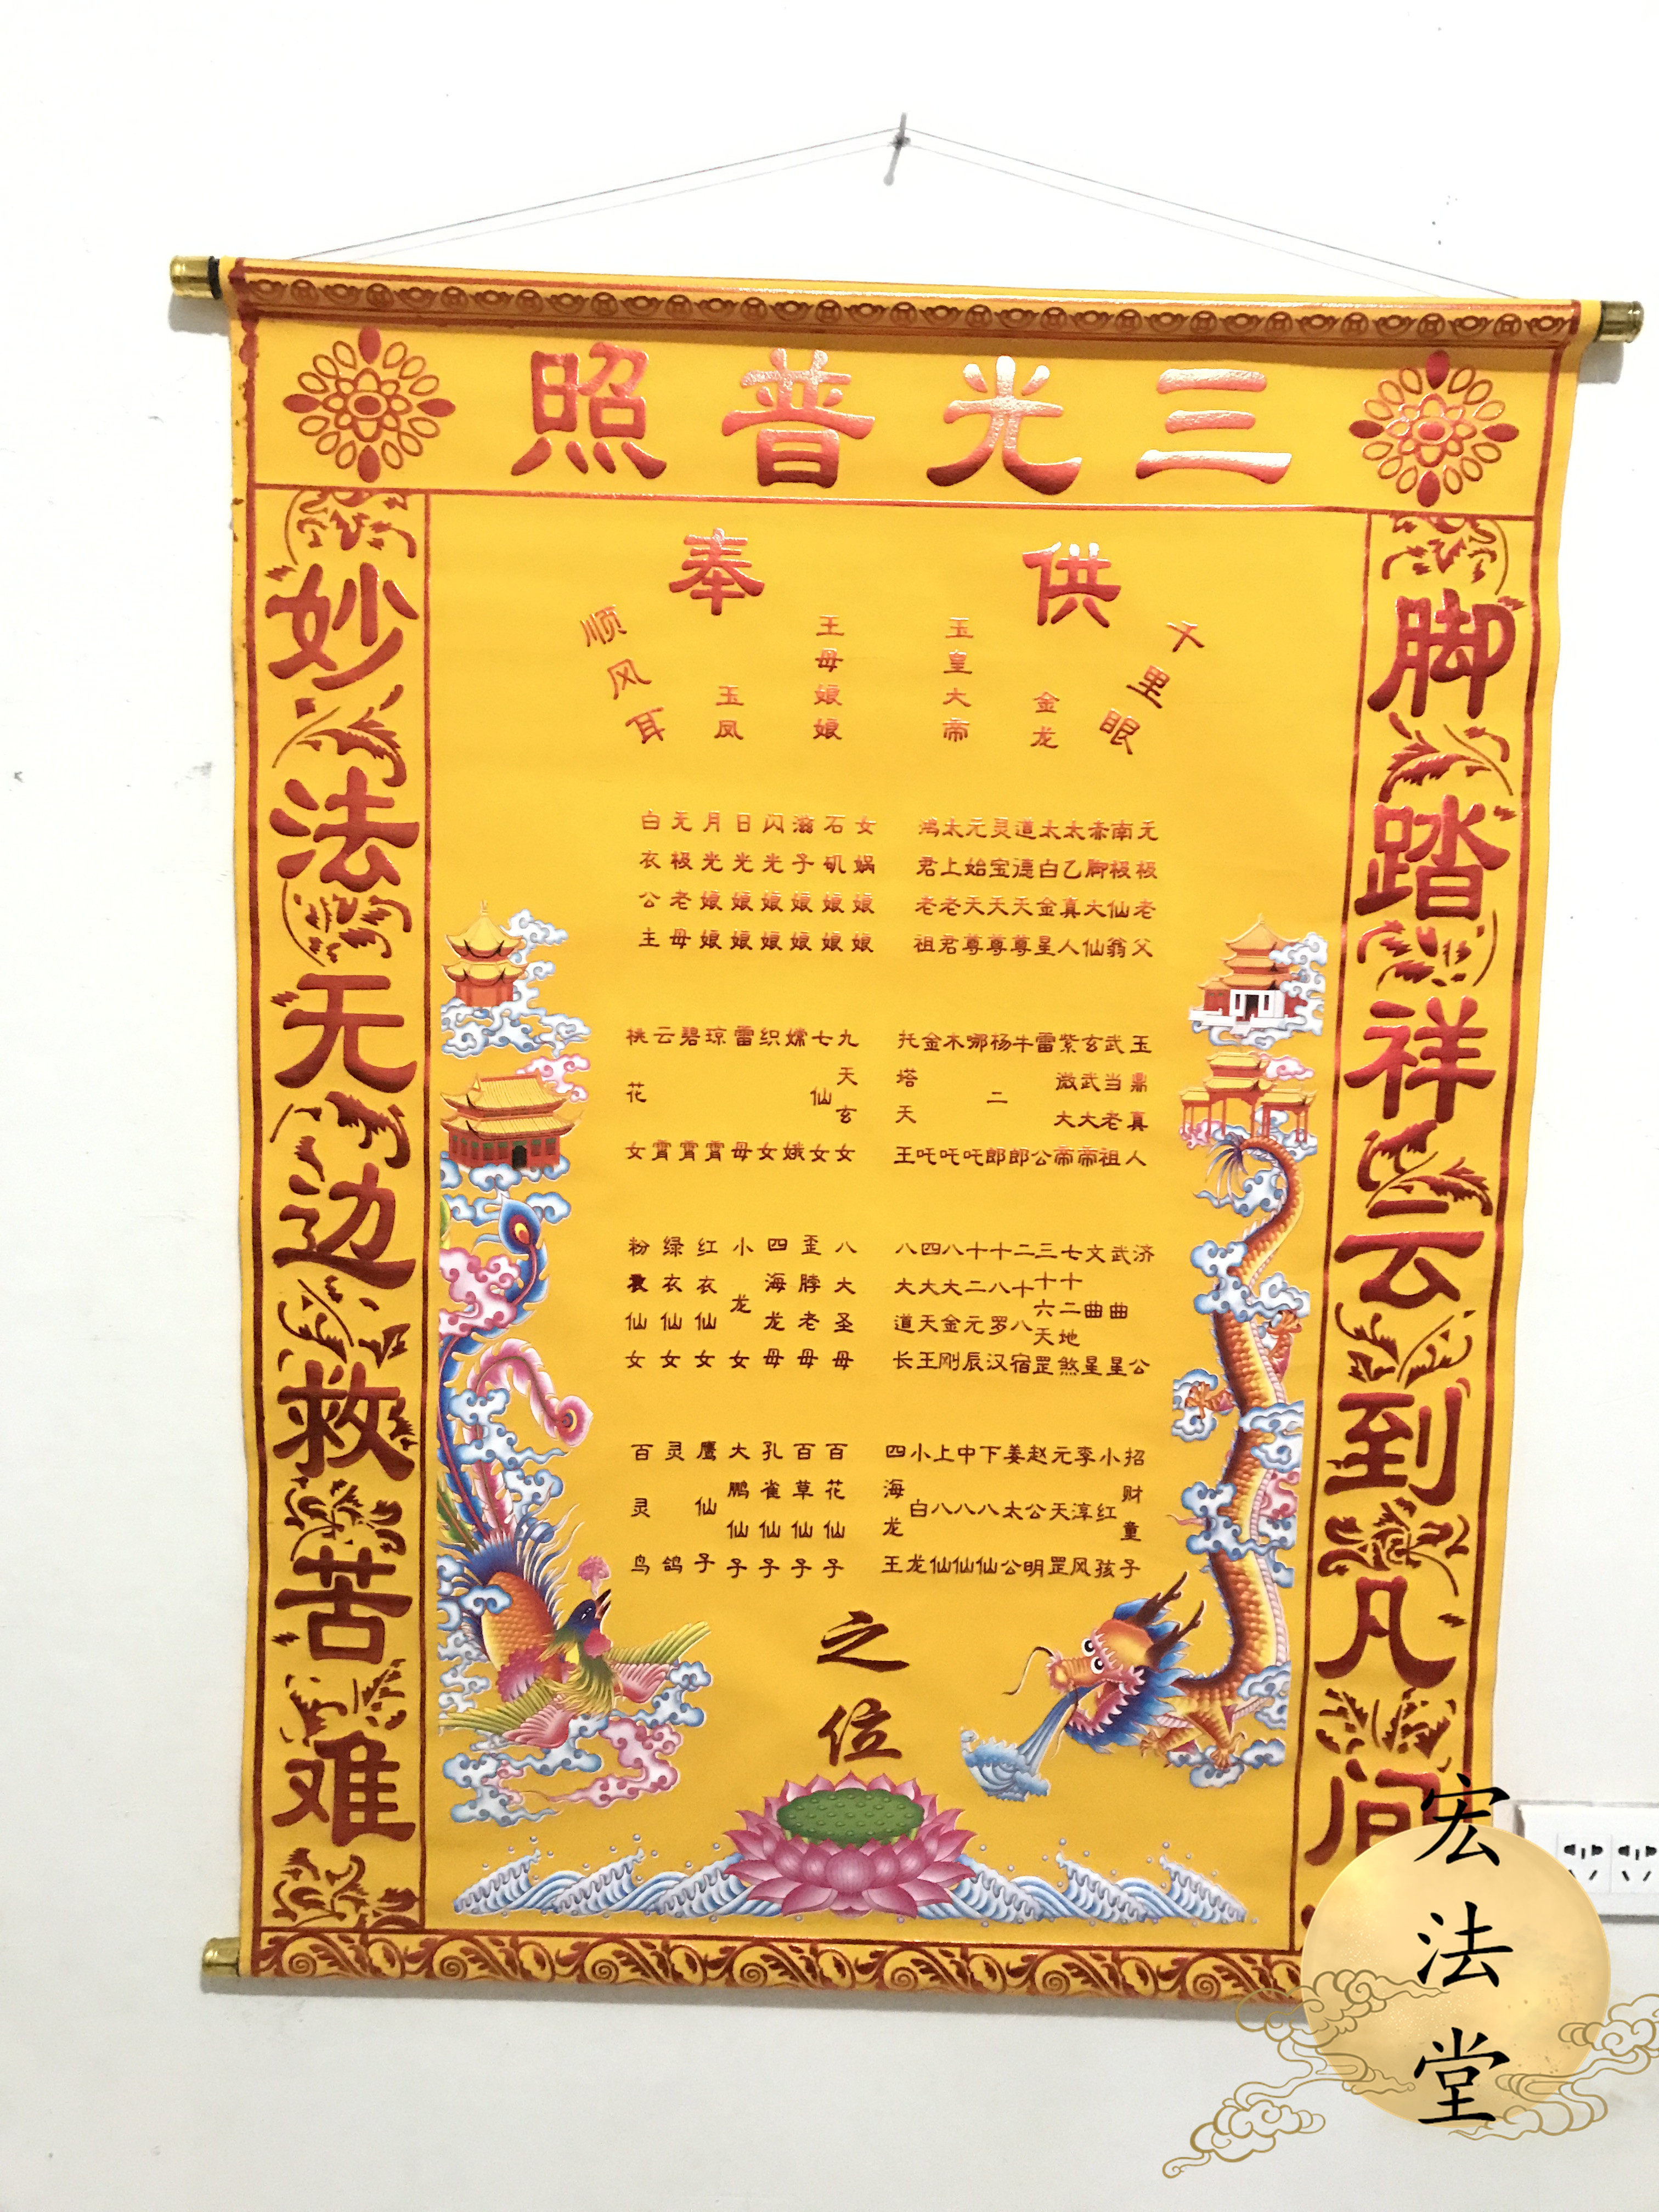 三光普照
脚踏祥云到凡间
妙法无边救苦难
供奉
千里眼
金龙
玉皇大帝
王母娘娘
玉凤
顺风耳
无极老父
南极仙翁
赤脚大仙
太乙真人
太白金星
道德天尊
灵宝天尊
元始天尊
太上老君
鸿君老祖
女娲娘娘
石矶娘娘
滋子娘娘
闪光娘娘
日光娘娘
月光娘娘
无极老母
白衣公主
玉鼎真人
武当老祖
玄武大帝
紫微大帝
雷公
牛郎
杨二郎
哪吒
木吒
金吒
托塔天王
九天玄女
七仙女
嫦娥
织女
雷母
琼霄
碧霄
云霄
桃花女
济公
武曲星
文曲星
七十二地煞
三十六天罡
二十八宿
十八罗汉
十二元辰
八大金刚
四大天王
八大道长
八大圣母
歪脖老母
四海龙母
小龙女
红衣仙女
绿衣仙女
粉衣仙女
招财童子
小红孩
李淳风
元天罡
赵公明
姜太公
下八仙
中八仙
上八仙
小白龙
四海龙王
百花仙子
百草仙子
孔雀仙子
大鹏仙子
鹰仙子
灵鸽
百灵鸟
之位
宏法堂